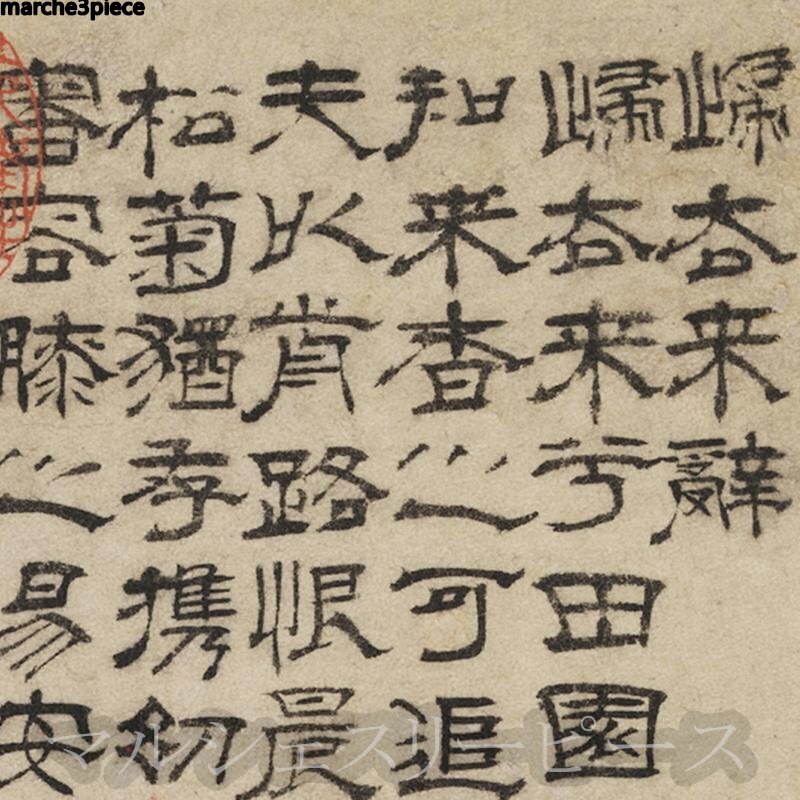 marche3piece
歸去来辭
歸去来兮田園
知来者之可追
夫以前路恨晨
松菊猶存携幼
審容膝之易安
マルシェスリーピース